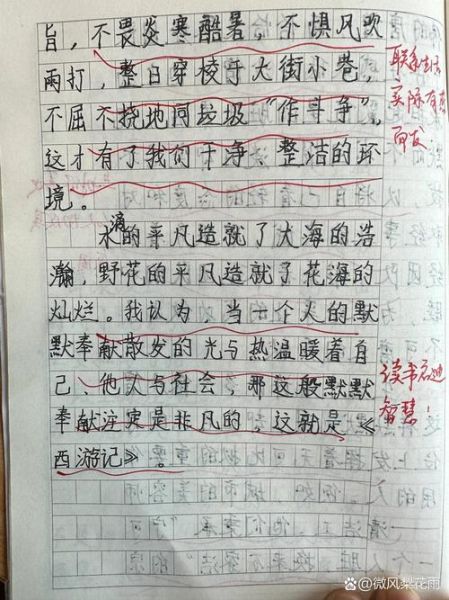 旨，不畏炎寒酷暑，不惧风吹
雨打，整日穿梭于大街小巷，
不屈不挠地同垃圾“作斗争”，
这才有了我们干净、整洁的环
境。
水滴的平凡造就了大海的浩
瀚，野花的平凡造就了花海的
灿烂。我认为，当一个人的默
默奉献散发的光与热温暖着自
己、他人与社会，那这般默默
奉献注定是非凡的，这就是《
西游记》。
联系生活
实际有感
而发
读书启迪
智慧！
@微风梨花雨